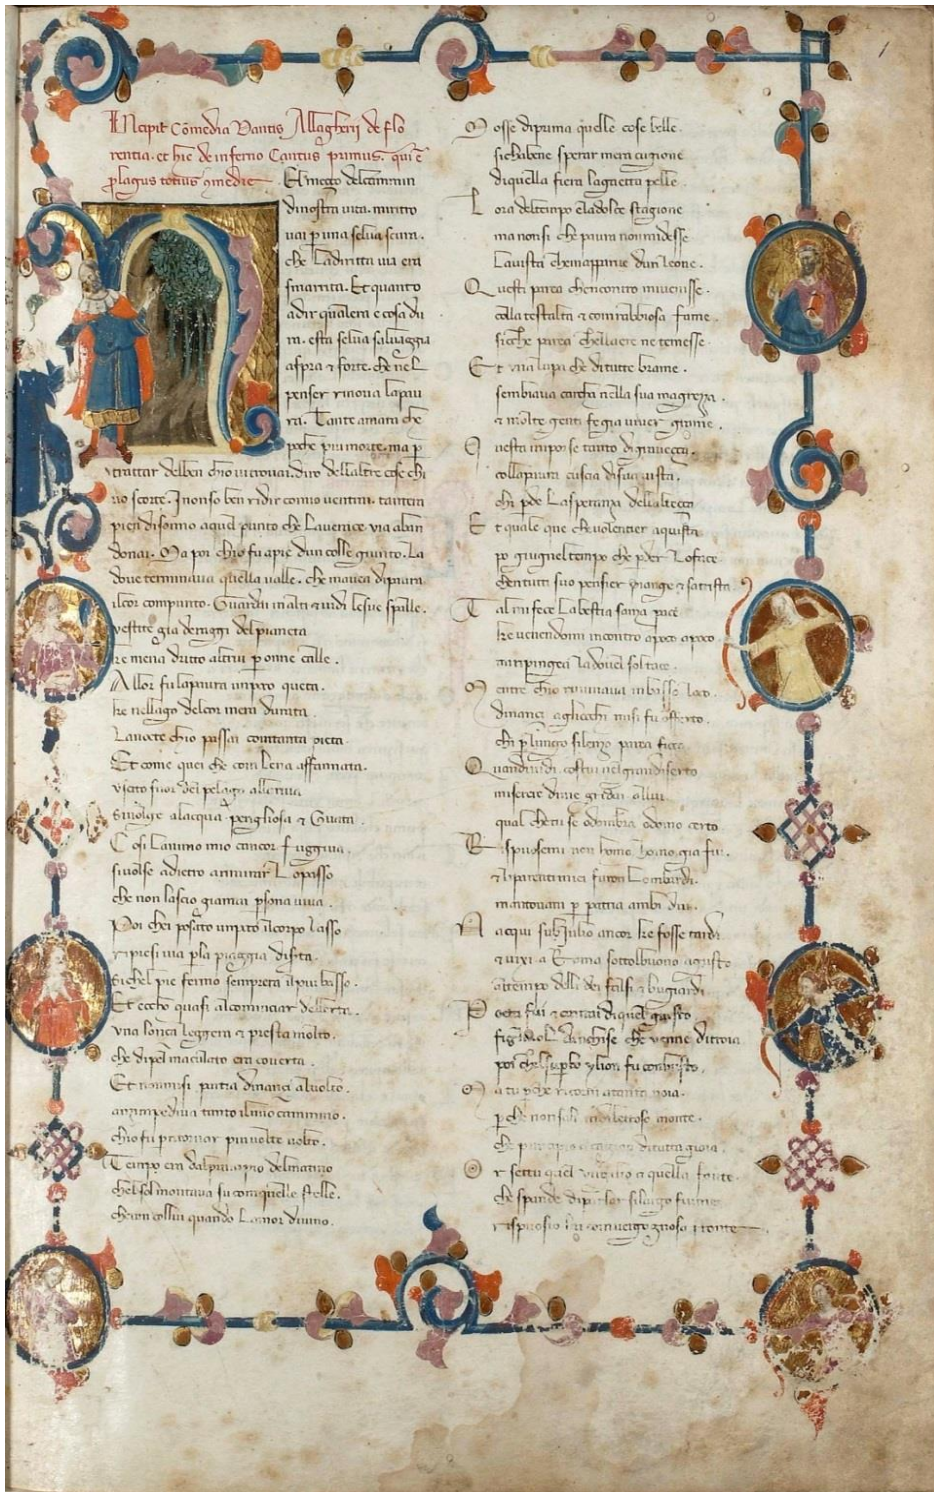 1
Incipit Comedia Dantis Allagherij de Flo
rentia. et hic de inferno Cantus primus. qui e
plagus totius comedie
El meço del cammin
di nostra vita. miritro
vai per una selva scura.
che la diritta via era
smarrita. Et quanto
a dir qual era e cosa du
ra. esta selva salvaggia
aspra et forte. che nel
penser rinova la pau
ra. Tante amara che
poche piu morte. ma per
trattar del ben chio vi trovai. diro dell altre cose chi
vo scorte. I non so ben ridir comio ventrai. tantera
pien di sonno a quel punto che la verace via aban
donai. Ma poi chio fu a pie dun colle giunto. La
dove terminava quella valle. che mavea di paura
il cor compunto. Guardai in alti et vidi le sue spalle.
vestite gia de raggi del pianeta
ke mena dritto altrui per onne calle.
Allor fu la paura un poco queta.
ke nel lago del cor mera durata
La nocte chio passai contanta pieta
Et come quei che con lena affannata.
uscito fuor del pelago alla riva
si volge alacqua perigliosa et Guata
Cosi lanimo mio cancor fuggiva.
si volse adietro a rimirar Lo passo
che non lascio giamai persona viva.
Poi chei posato un poco il corpo lasso
ripresi via per la piaggia diserta.
si chel pie fermo sempre era il piu basso.
Et eccho quasi al cominciar dellerta.
una lonça leggera et presta molto.
che di pel maculato era coverta.
Et non mi si partia dinançi al volto.
anzi mpediva tanto il mio cammino.
chio fu per ritornar piu volte volto.
Tempo era dal principio del matino
chel sol montava su con quelle stelle.
cheran collui quando Lamor divino.
Mosse di prima quelle cose belle.
si chabene sperar mera cagione
di quella fiera la gaetta pelle
Lora del tempo et la dolce stagione
ma non si che paura non mi desse
La vista che mapparve dun leone.
Questi parea che ncontro mi venisse.
colla test alta et con rabbiosa fame.
sicche parea che llaere ne temesse
Et una lupa che di tutte brame.
sembiava carcha nella sua magrezza.
et molte genti fe gia viver grame.
Questa mi porse tanto di graveçça.
colla paura cuscia di sua vista.
chi perde La sperança dellalteçça
Et quale que che volentier aquista
po giugne l tempo che perder Lo face
che n tutti suo pensier piange et satrista.
Tal mi fece La bestia sança pace
ke venendomi incontro apoco apoco
mi ripingea la dove l sol tace.
Mentre chio ruvinava in basso loco.
dinançi agliocchi mi si fu offerto.
chi per lungo silenzo parea fioco
Quandi vidi costui nel gran diserto
miserere di me gridai allui
qual che tu se od ombra od omo certo
Rispuosemi non homo homo gia fui.
et li parenti miei furon Lombardi.
mantovani per patria ambi dui.
Nacqui sub Julio ancor ke fosse tardi
et vixi a Roma sottol buono agusto
al tempo delli dei falsi et bugiardi
Poeta fui et cantai di quel giusto
figliuol danchise che venne di troia
poi chel superbo ylion fu combusto.
Ma tu perche ritorni a tanta noia.
perche non sali il dilettoso monte.
che principio et cagion di tutta gioia.
Or settu quel virgilio et quella fonte.
che spande di parlar si largo fiume
rispuosio lui con vergognosa fronte